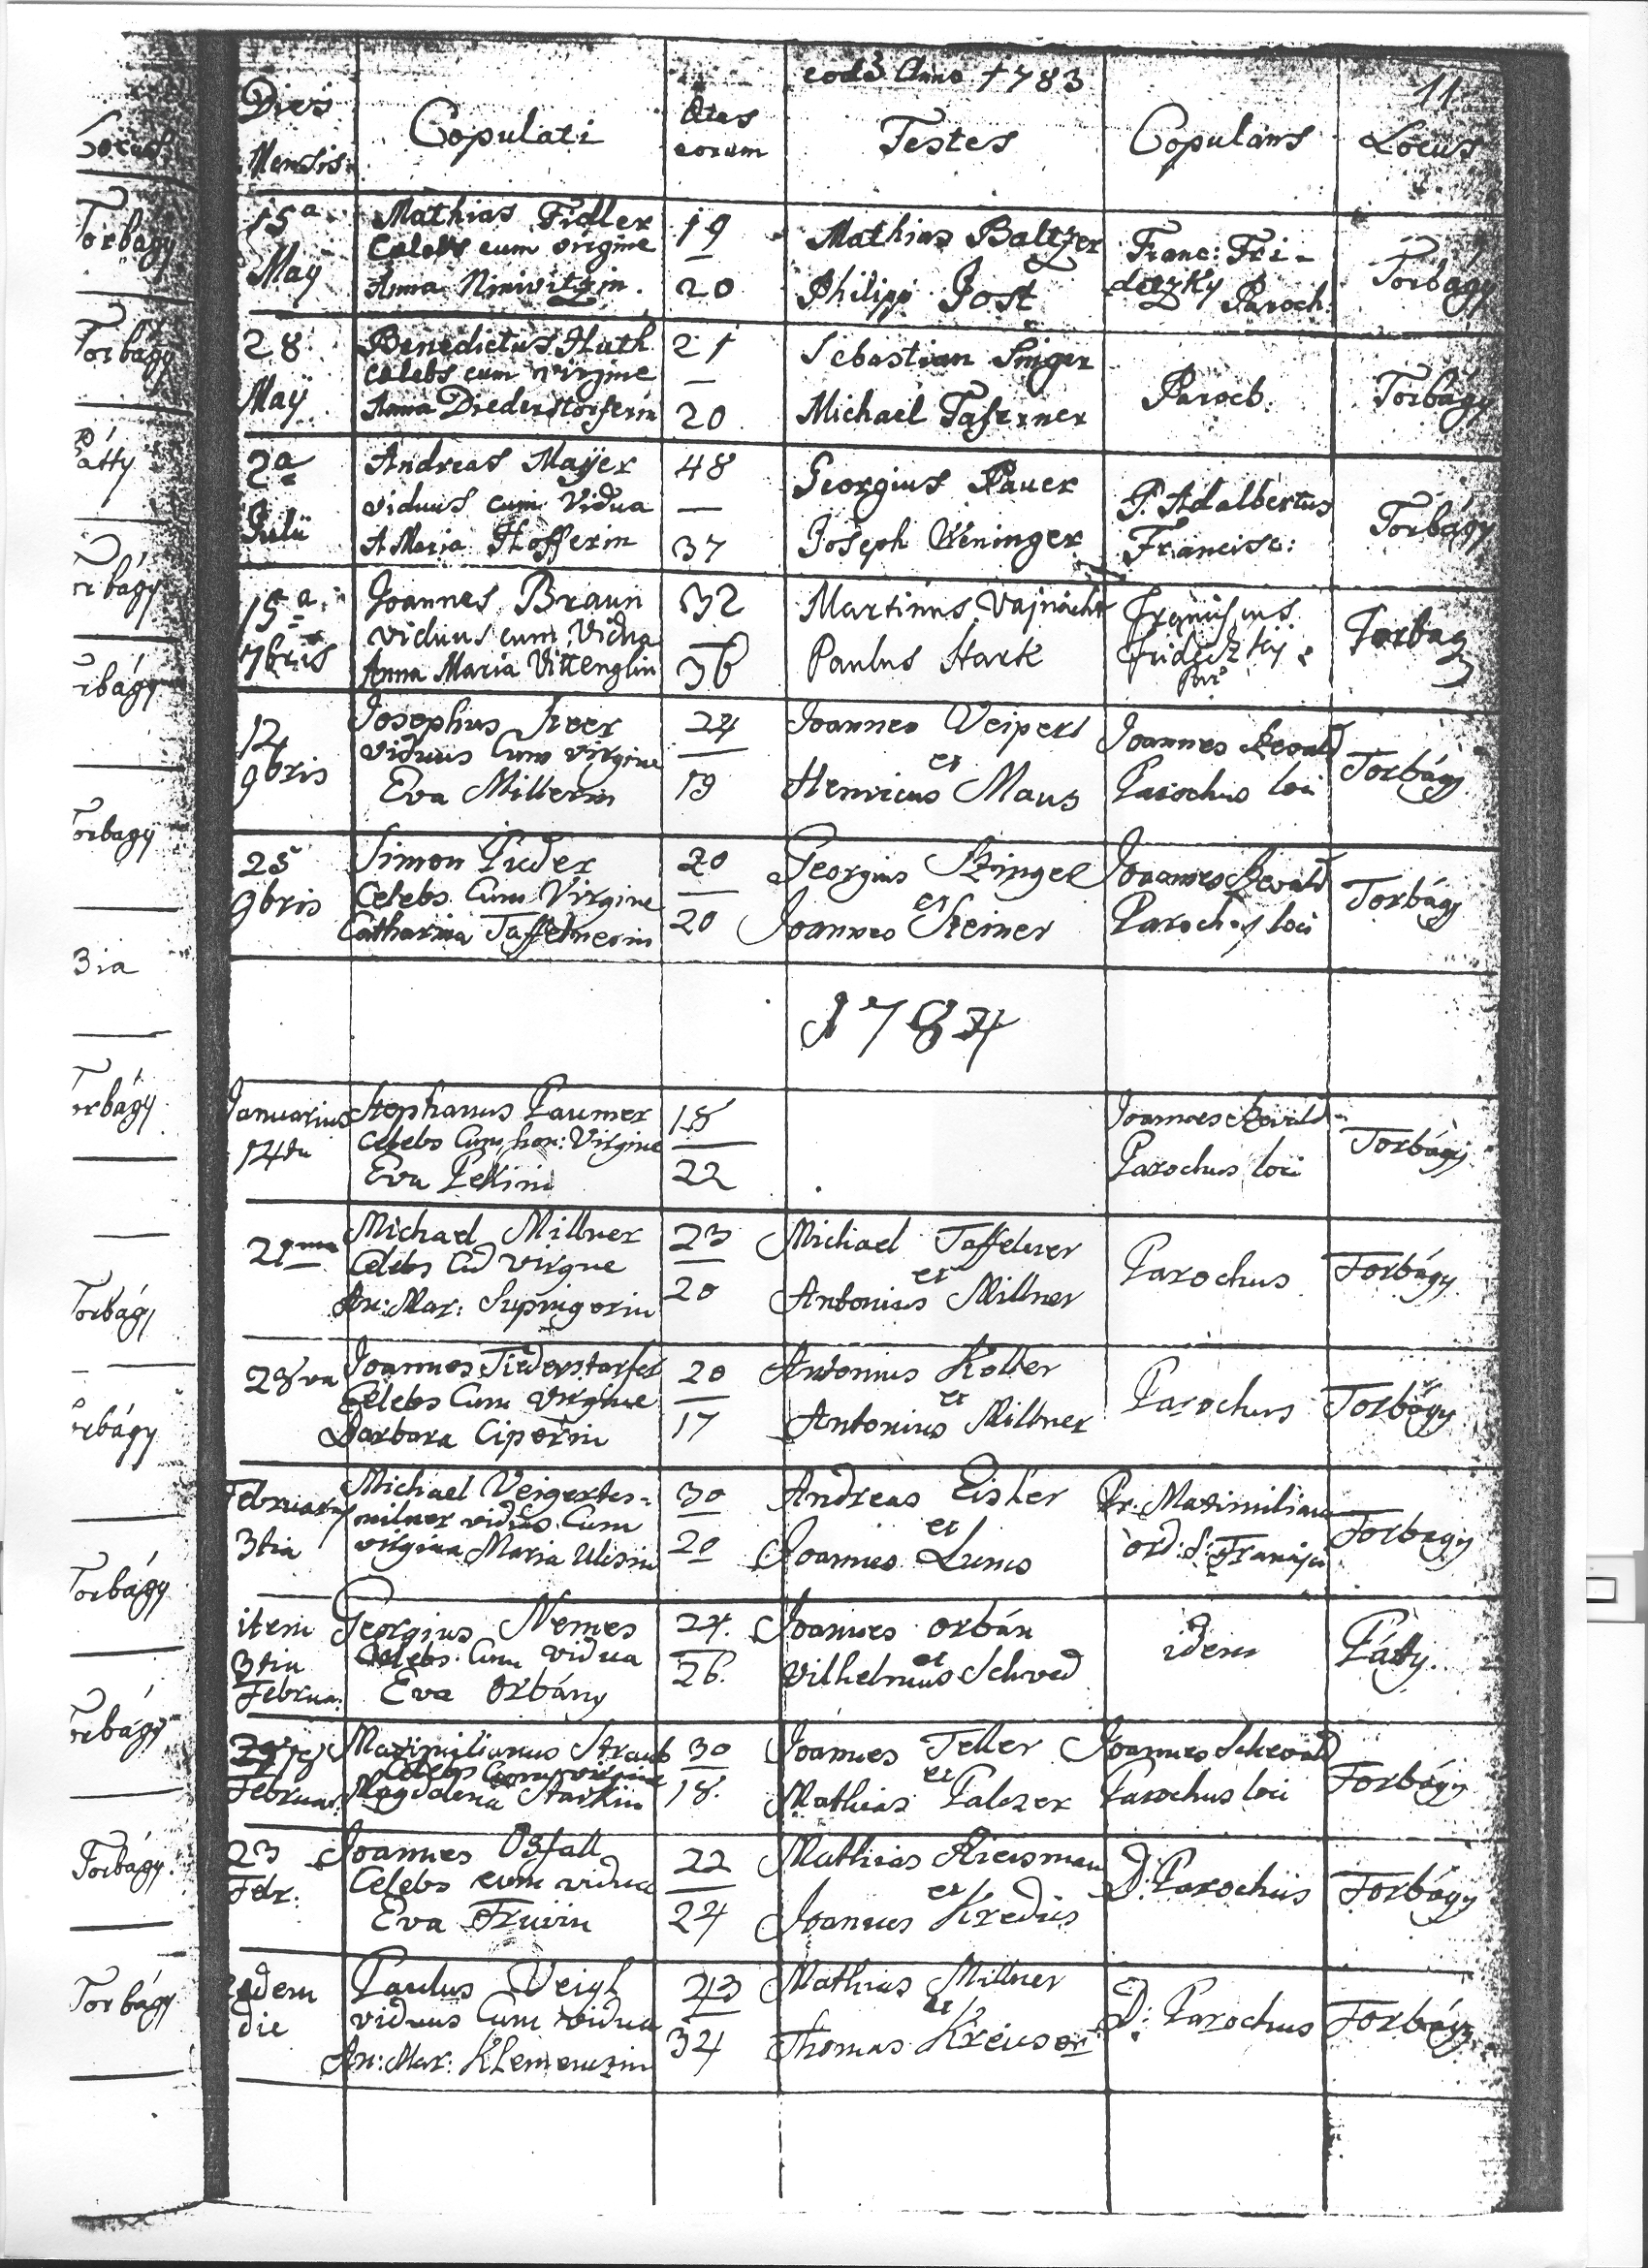 eodẽ Anno 1783
11
Dies Mensis
Copulati
Ætas eorum
Testes
Copulans
Locus
15a May
Mathias Fidler
Celebs cum virgine
Anna Ninivitzin.
19
20
Mathias Baltzer
Philipp Jost
Franc: Fri-
deczky Paroch:
Torbágy
28 May
Benedictus Huth
celebs cum virgine
Anna Diederstorferin
21
20
Sebastian Singer
Michael Taferner
Paroch.
Torbágy
2a Julii
Andreas Mayer
viduus cum vidua
A Maria Hofferin
48
37
Georgius Pauer
Joseph Weninger
P. Adalbertus
Francisc:
Torbágy
15a 7bris
Joannes Braun
viduus cum vidua
Anna Maria Vittenglin
32
36
Martinus Vajnácht
Paulus Stark
Franciscus
Frideczky
Par
Torbagy
12 9bris
Josephus
viduus Cum virgine
Eva Millerin
24
19
Joannes Veipert
et
Henricus Maus
Joannes
Parochus loci
Torbágy
25 9bris
Simon Puder
Celebs Cum Virgine
Catharina Taffelnerin
20
20
Georgius
et
Joannes Steiner
Joannes
Parochus loci
Torbágy
1784
Januarius 14ta
Stephanus Paumer
Celebs Cum hon: Virgine
Eva
18
22
Joannes
Parochus loci
Torbágy
Michael Millner
Celebs Cũ Virgine
An: Mar:
23
20
Michael Taffelner
et
Antonius Millner
Parochus
Torbágy
28va
Joannes Tiederstorfer
Celebs Cum Virgine
Barbara Ciperin
20
17
Antonius Kolber
et
Antonius Millner
Parochus
Torbágy
Februarij 3tia
Michael Veigertes-
milner viduus Cum
virgina Maria Ulisin
30
20
Andreas Eisler
et
Joannes Lunis
Pr. Maximilian
ord: S: Francisci
Torbágy
item 3tia Februa:
Georgius Nemes
Celebs Cum vidua
Eva Orbány
24.
26.
Joannes Orbán
et
Vilhelmus Schved
idem
Pátty.
Februar:
Maximilianus Straub
Celebs Cum virgine
Magdalena Starkin
30
18.
Joannes Teller
et
Mathias Palczer
Joannes Schevald
Parochus loci
Torbágy
23 Febr:
Joannes Osfall
Celebs cum vidua
Eva Fruvin
22
24
Mathias Kreisman
et
Joannes Kredis
D: Parochus
Torbágy
eadem die
Paulus Veigl
viduus Cum vidua
An: Mar: Klemenczin
43
34
Mathias Millner
et
Thomas Kreuser
D: Parochus
Torbágy
Locus
Torbagy
Torbágy
Pátty
Torbágy
Torbágy
Torbagy
Bia
Torbágy
Torbágy
Torbágy
Torbágy
Torbágy
Torbágy.
Torbágy